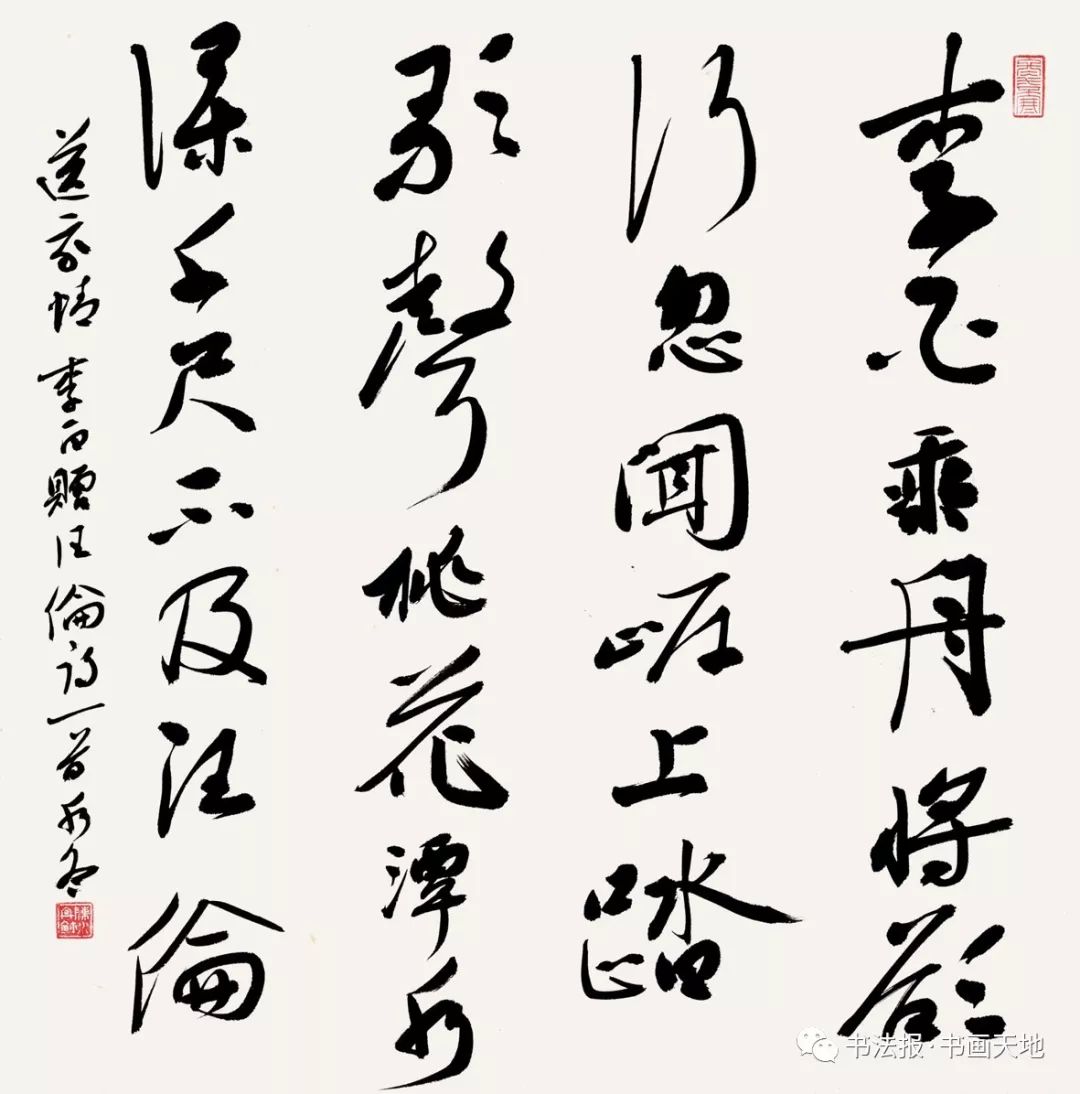 李白乘舟将欲
行忽聞岸上踏
歌聲桃花潭水
深千尺不及汪倫
送我情 李白贈汪倫詩一首
书法报·书画天地